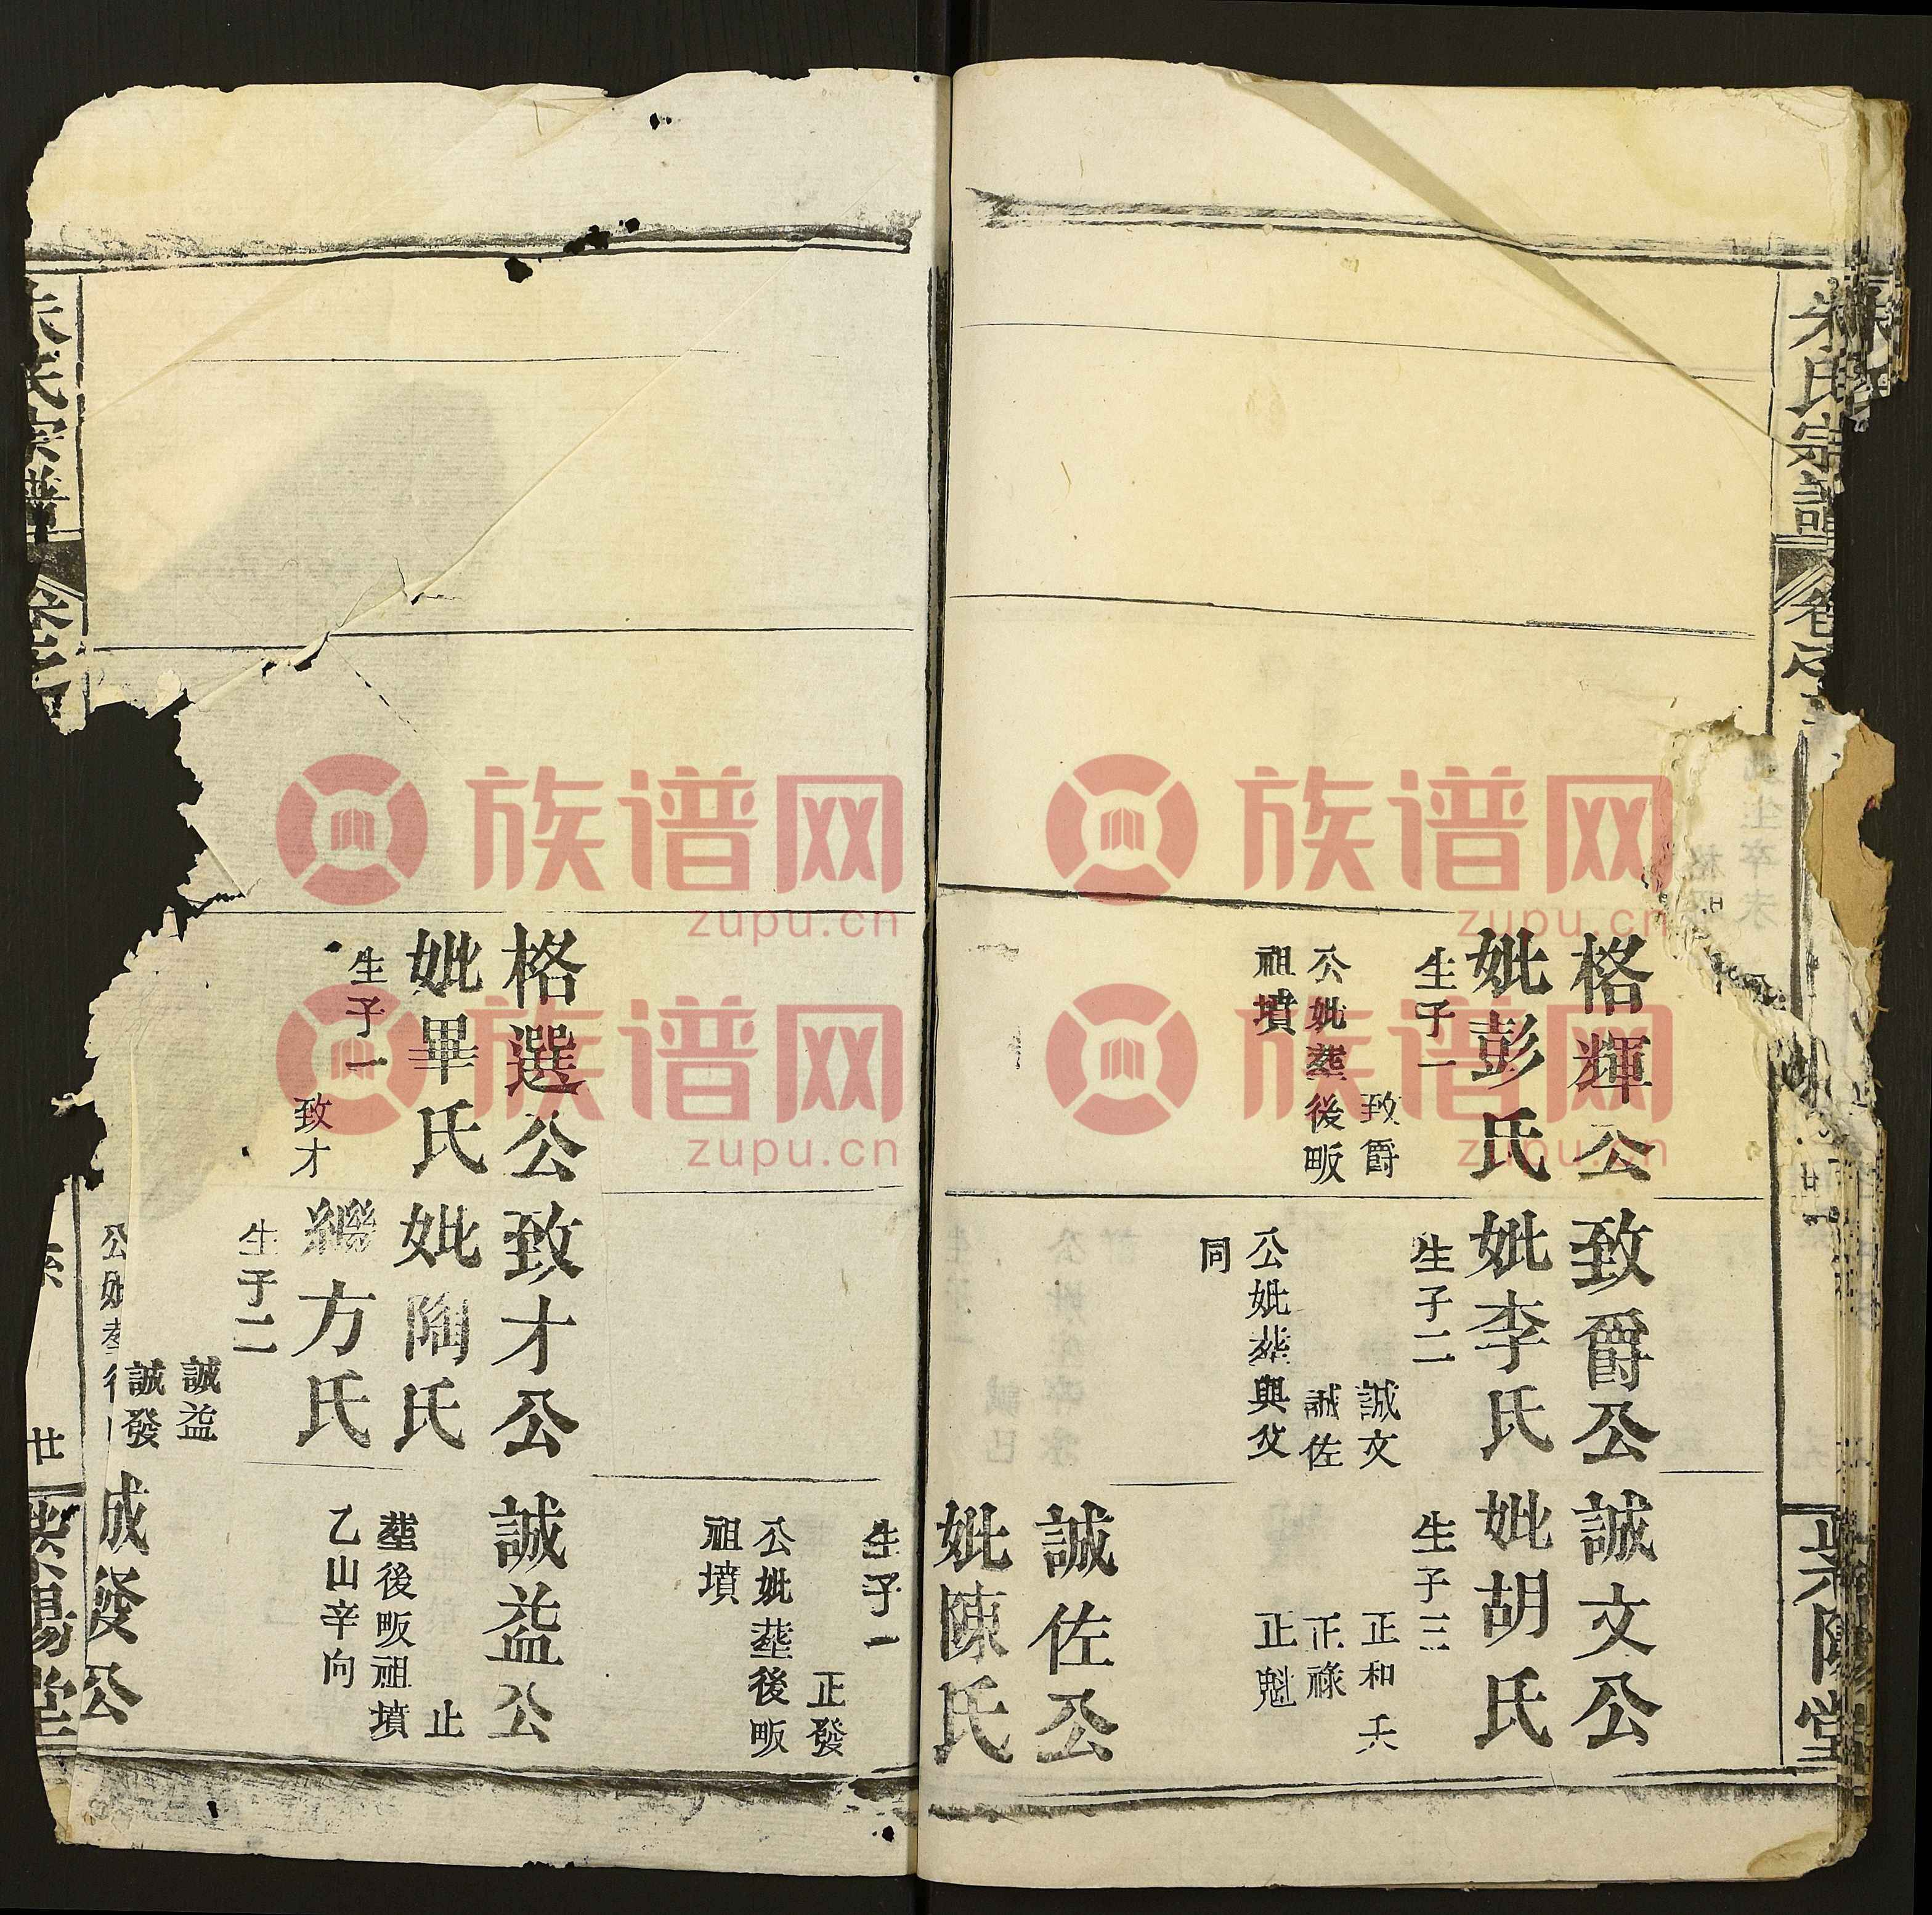 朱氏宗譜
卷之
紫陽堂
格輝公
妣彭氏
生子一
致爵
公妣塟後畈
祖墳
致爵公
妣李氏
生子二
誠文
誠佐
公妣塟與父
同
誠文公
妣胡氏
生子三
正和 夭
正祿
正魁
誠佐公
妣陳氏
生子一
正發
公妣塟後畈
祖墳
格選公
妣畢氏
生子一
致才
致才公
妣陶氏
繼方氏
生子二
誠益
誠發
公妣塟後
誠益公
止
塟後畈祖墳
乙山辛向
誠發公
朱氏宗譜
廿
紫陽堂
族谱网
zupu.cn
族谱网
zupu.cn
族谱网
zupu.cn
族谱网
zupu.cn